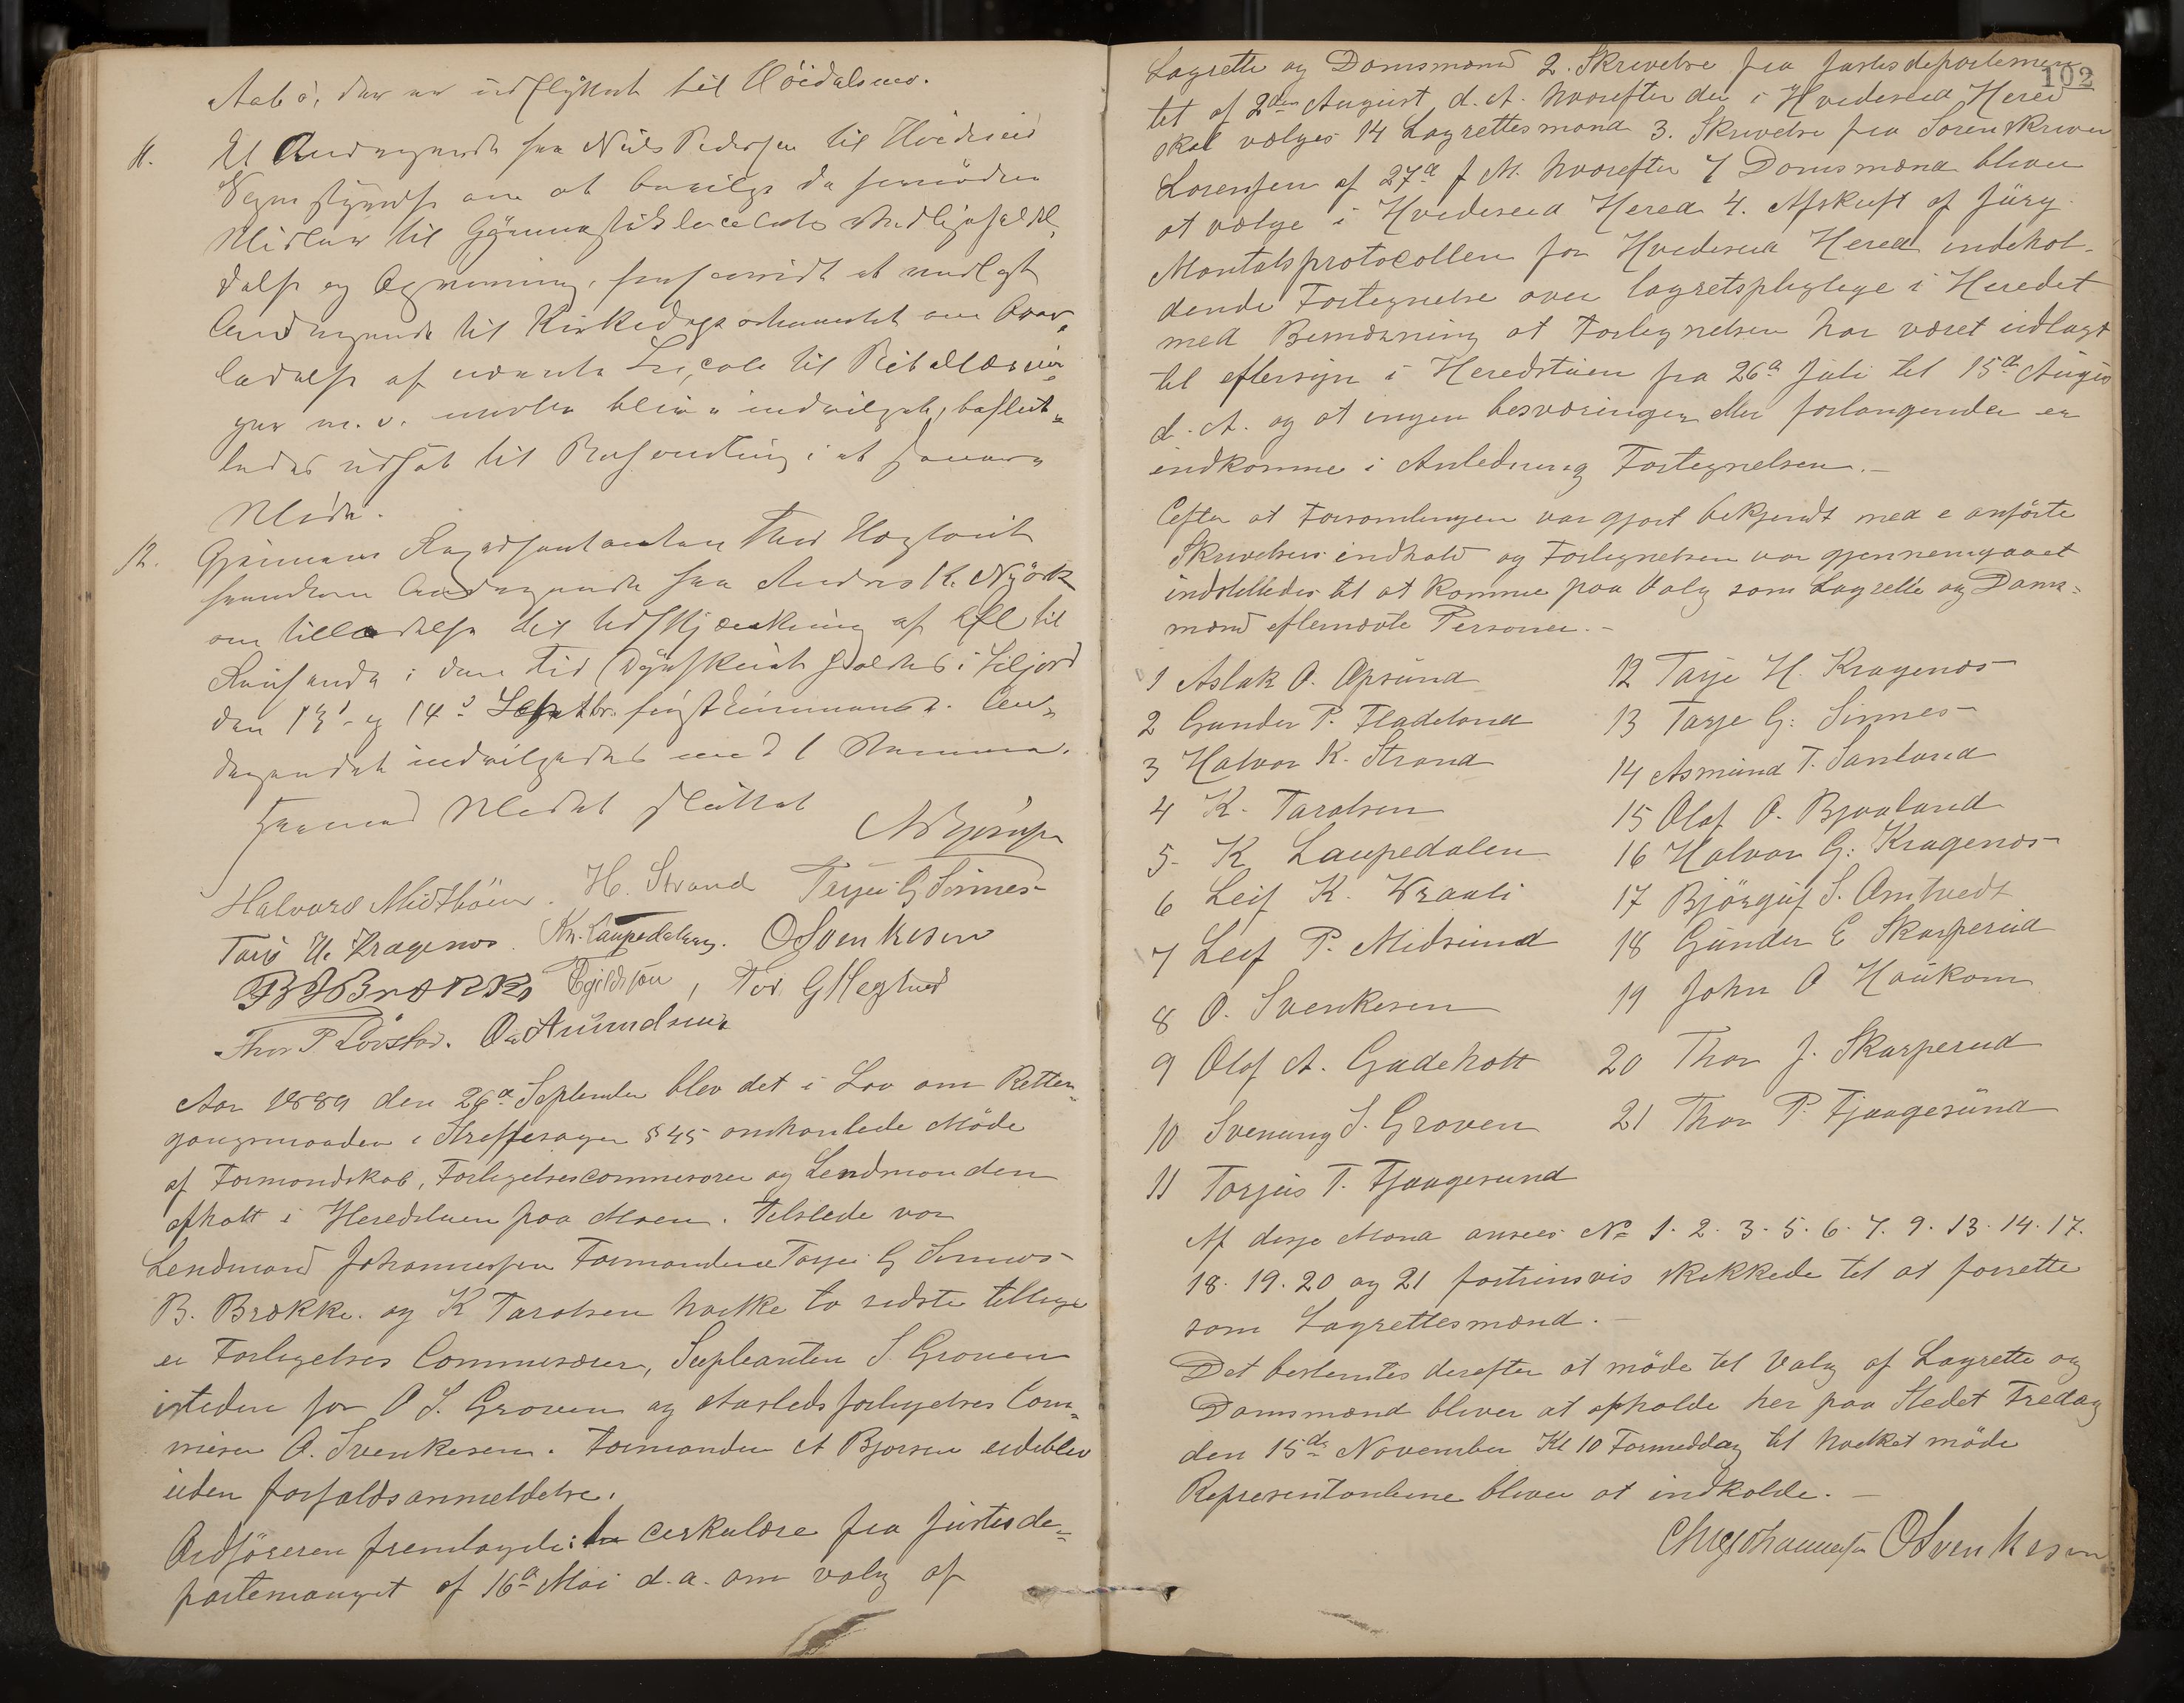 Aabø, der er udflyttet til Høidalsmo.
11. Et Andragende fra Niels Pedersen til Hvideseid
om at bevilge de fornødne
Midler til Gymnastiklocalets
og, forsaavidt et
Andragende til Kirkedepartementet om Over-
ladelse af nævnte Locale til
m. v. maatte blive indvilget, beslut-
tedes udsat til Behandling i et senere
Møde.
12. Gjennem Repræsentanten Thor Hegtveit
Andragende fra Anders K. Nyörk
om tilladelse til Udskjænkning af Øl til
Reisende i den Tid Dyrskuet holdes i Siljord
den 13de og 14de Septbr. førstkommende. An-
dragendet indvilgedes med Stemmer.
Hermed Mødet sluttet
A Bjørnsen
Halvard Midtbøen. H. Strand Tarjei G Sinnes
Tarje H. Kragenes. Kn. Laupedalen. O Svenkesen
B J Brække Egildsson, Tov G Hegtved
Thor P. Lovstad. O. Amundsen
Aar 1889 den 26de September blev det i Lov om Retter-
gangsmaaden i Straffesager § 45 omhandlede Møde
af Formandskab, Forligelsescommisærer og Lendmanden
afholt i Heredstuen paa Moen. Tilstede var
Lendmand Johannessen Formændene Tarje G Sinnes
B. Brække. og K Taraldsen hvilke to sidste tillige
er Forligelses Commisærer, Supleanten S. Groven
isteden for O S. Groven og Aasteds forligelses Com-
misær O. Svenkesen. Formanden A Bjørnsen udeblev
uden forfaldsanmeldelse.
Ordføreren fremlagde: cirkulære fra Justisde-
partemanget af 16de Mai d. a. om valg af
102
Lagrette og Domsmænd 2. Skrivelse fra Justisdepartemen
tet af 2den August d. A. hvorefter der i Hvideseid Hered
skal vælges 14 Lagrettesmænd 3. Skrivelse fra Sorenskriver
Lorensen af 27de f M. hvorefter 7 Domsmænd bliver
at vælge i Hvideseid Hered 4. Afskrift af Jury
Mantalsprotocollen for Hvideseid Hered indehol-
dende Fortegnelse over lagretspligtige i Heredet
med Bemærkning at Fortegnelsen har været udlagt
til eftersyn i Heredstuen fra 26de Juli til 15de August
d. A. og at ingen besværinger eller forlangender er
indkomne i Anledning Fortegnelsen.—
Efter at Forsamlingen var gjort bekjendt med anførte
Skrivelsers indhold og Fortegnelsen var gjennemgaaet
indstilledes til at komme paa Valg som Lagrette og Doms-
mænd eftenævte Personer.—
1 Aslak O. Apsund
2 Gunder P. Fladeland
3 Halvor K. Strand
4 K. Taraldsen
5. K. Laupedalen
6 Leif K. Vraali
7 Leif P. Midsund
8 O. Svenkesen
9 Olaf A. Gudeholt
10 Svenung S. Groven
11 Torjus T. Fjaagesund
12 Tarje H. Kragenes
13 Tarje G. Sinnes
14 Asmund T. Sanland
15 Olaf O. Bjaaland
16 Halvor G. Kragenes
17 Bjørguf S. Omtvedt
18 Gunder E Skarperud
19 John O Haukom
20 Thor J. Skarperud
21 Thor P. Fjaagesund
Af disse Mænd ansees No 1. 2. 3. 5. 6. 7. 9. 13. 14. 17.
18. 19. 20 og 21 fortrinsvis skikkede til at forrette
som Lagrettesmænd.—
Det bestemtes derefter at møde til Valg af Lagrette og
Domsmænd bliver at afholde her paa Stedet Fredag
den 15de November Kl 10 Formiddag til hvilket møde
Representanterne bliver at indkalde.—
Johannessen O Svenkesen